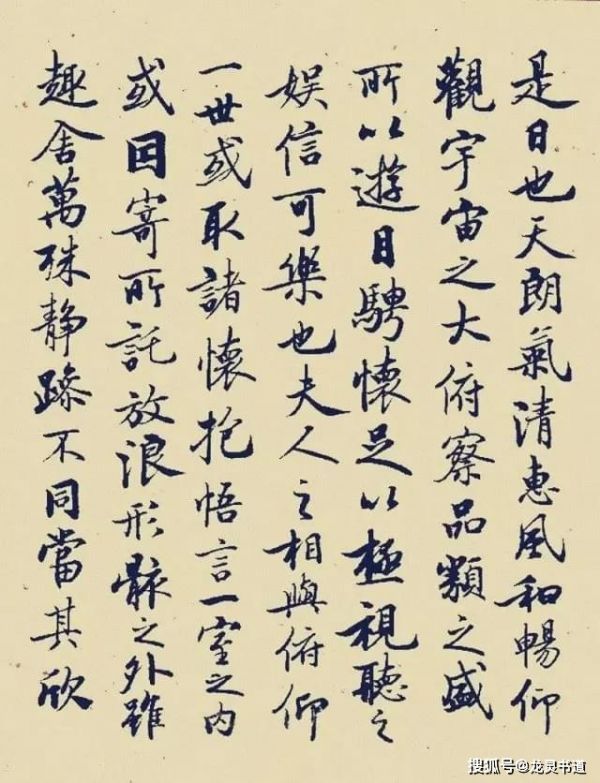 是日也天朗氣清惠風和暢仰
觀宇宙之大俯察品類之盛
所以遊目騁懷足以極視聽之
娱信可樂也夫人之相與俯仰
一世或取諸懷抱悟言一室之内
或因寄所託放浪形骸之外雖
趣舍萬殊静躁不同當其欣
搜狐号@龙灵书道